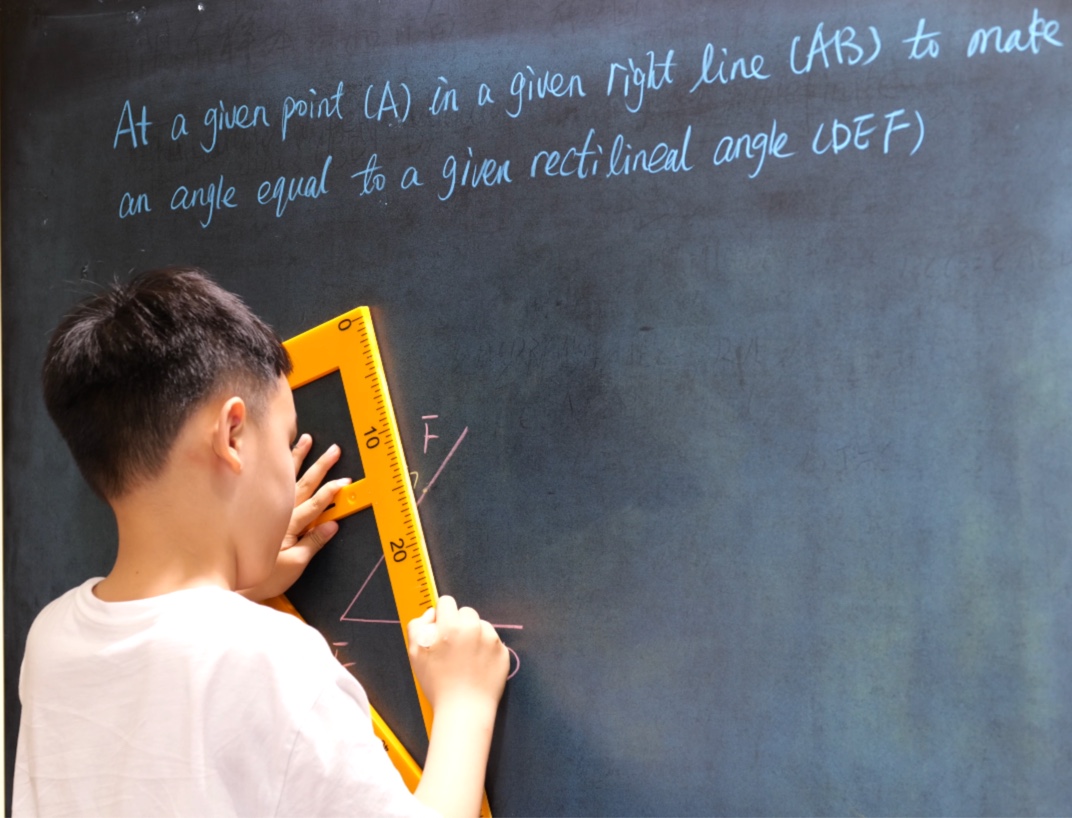 At a given point (A) in a given right line (AB) to make
an angle equal to a given rectilineal angle (DEF)
0
F
10
20
E
D